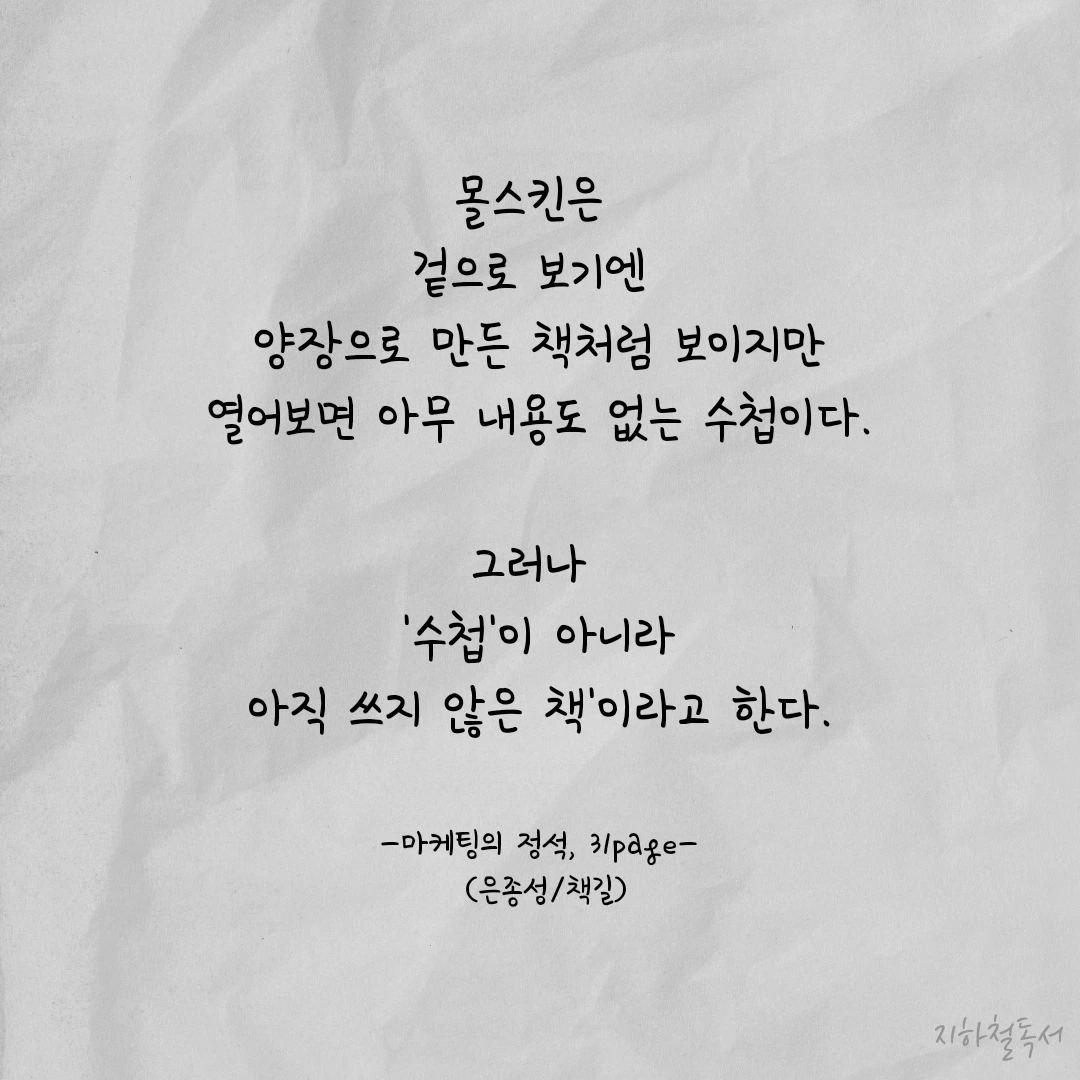 몰스킨은
겉으로 보기엔
양장으로 만든 책처럼 보이지만
열어보면 아무 내용도 없는 수첩이다.
그러나
'수첩'이 아니라
아직 쓰지 않은 책'이라고 한다.
-마케팅의 정석, 31page-
(은종성/책길)
지하철독서